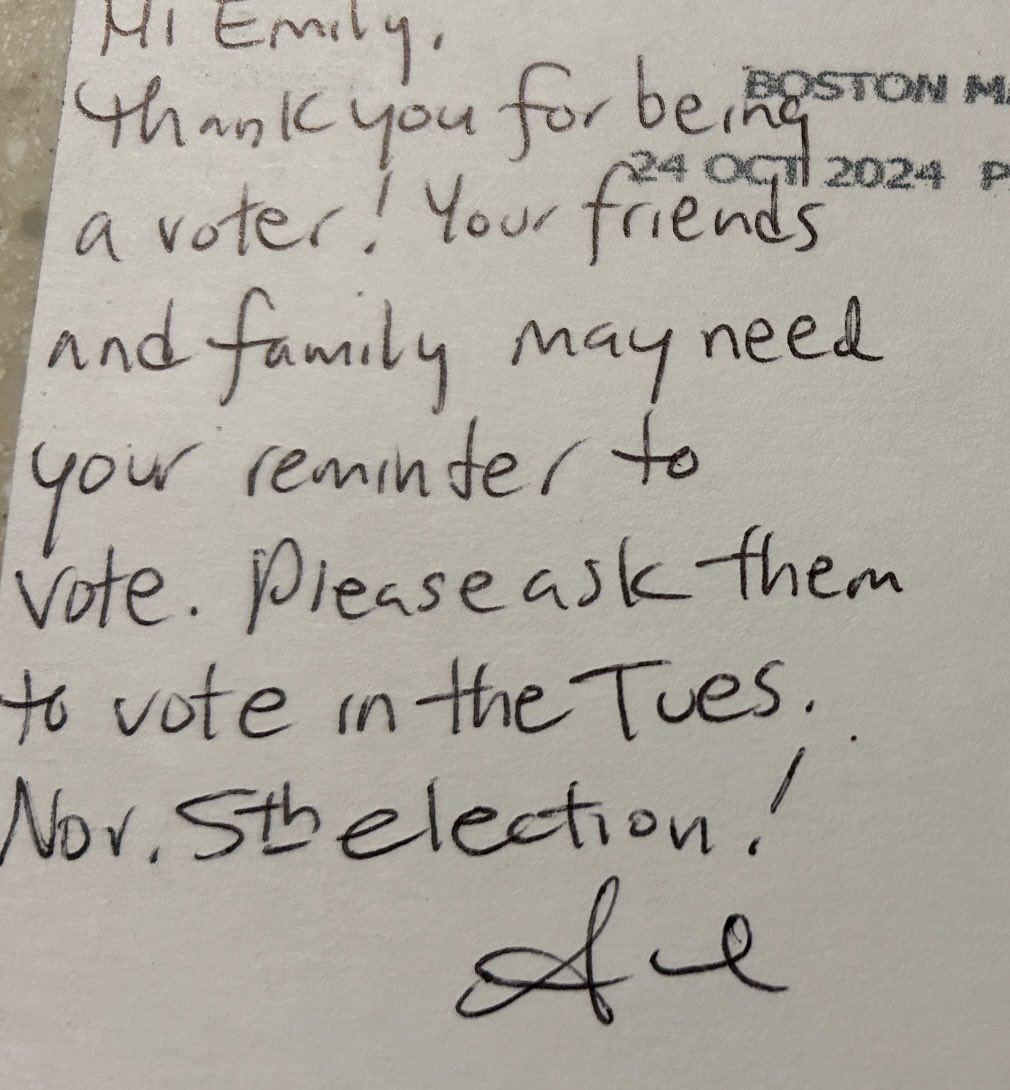 Hi Emily,
Thank you for being
BOSTON MA
24 OCT 2024 P
a voter! Your friends
and family may need
your reminder to
vote. Please ask them
to vote in the Tues.
Nov. 5th election!
Sue